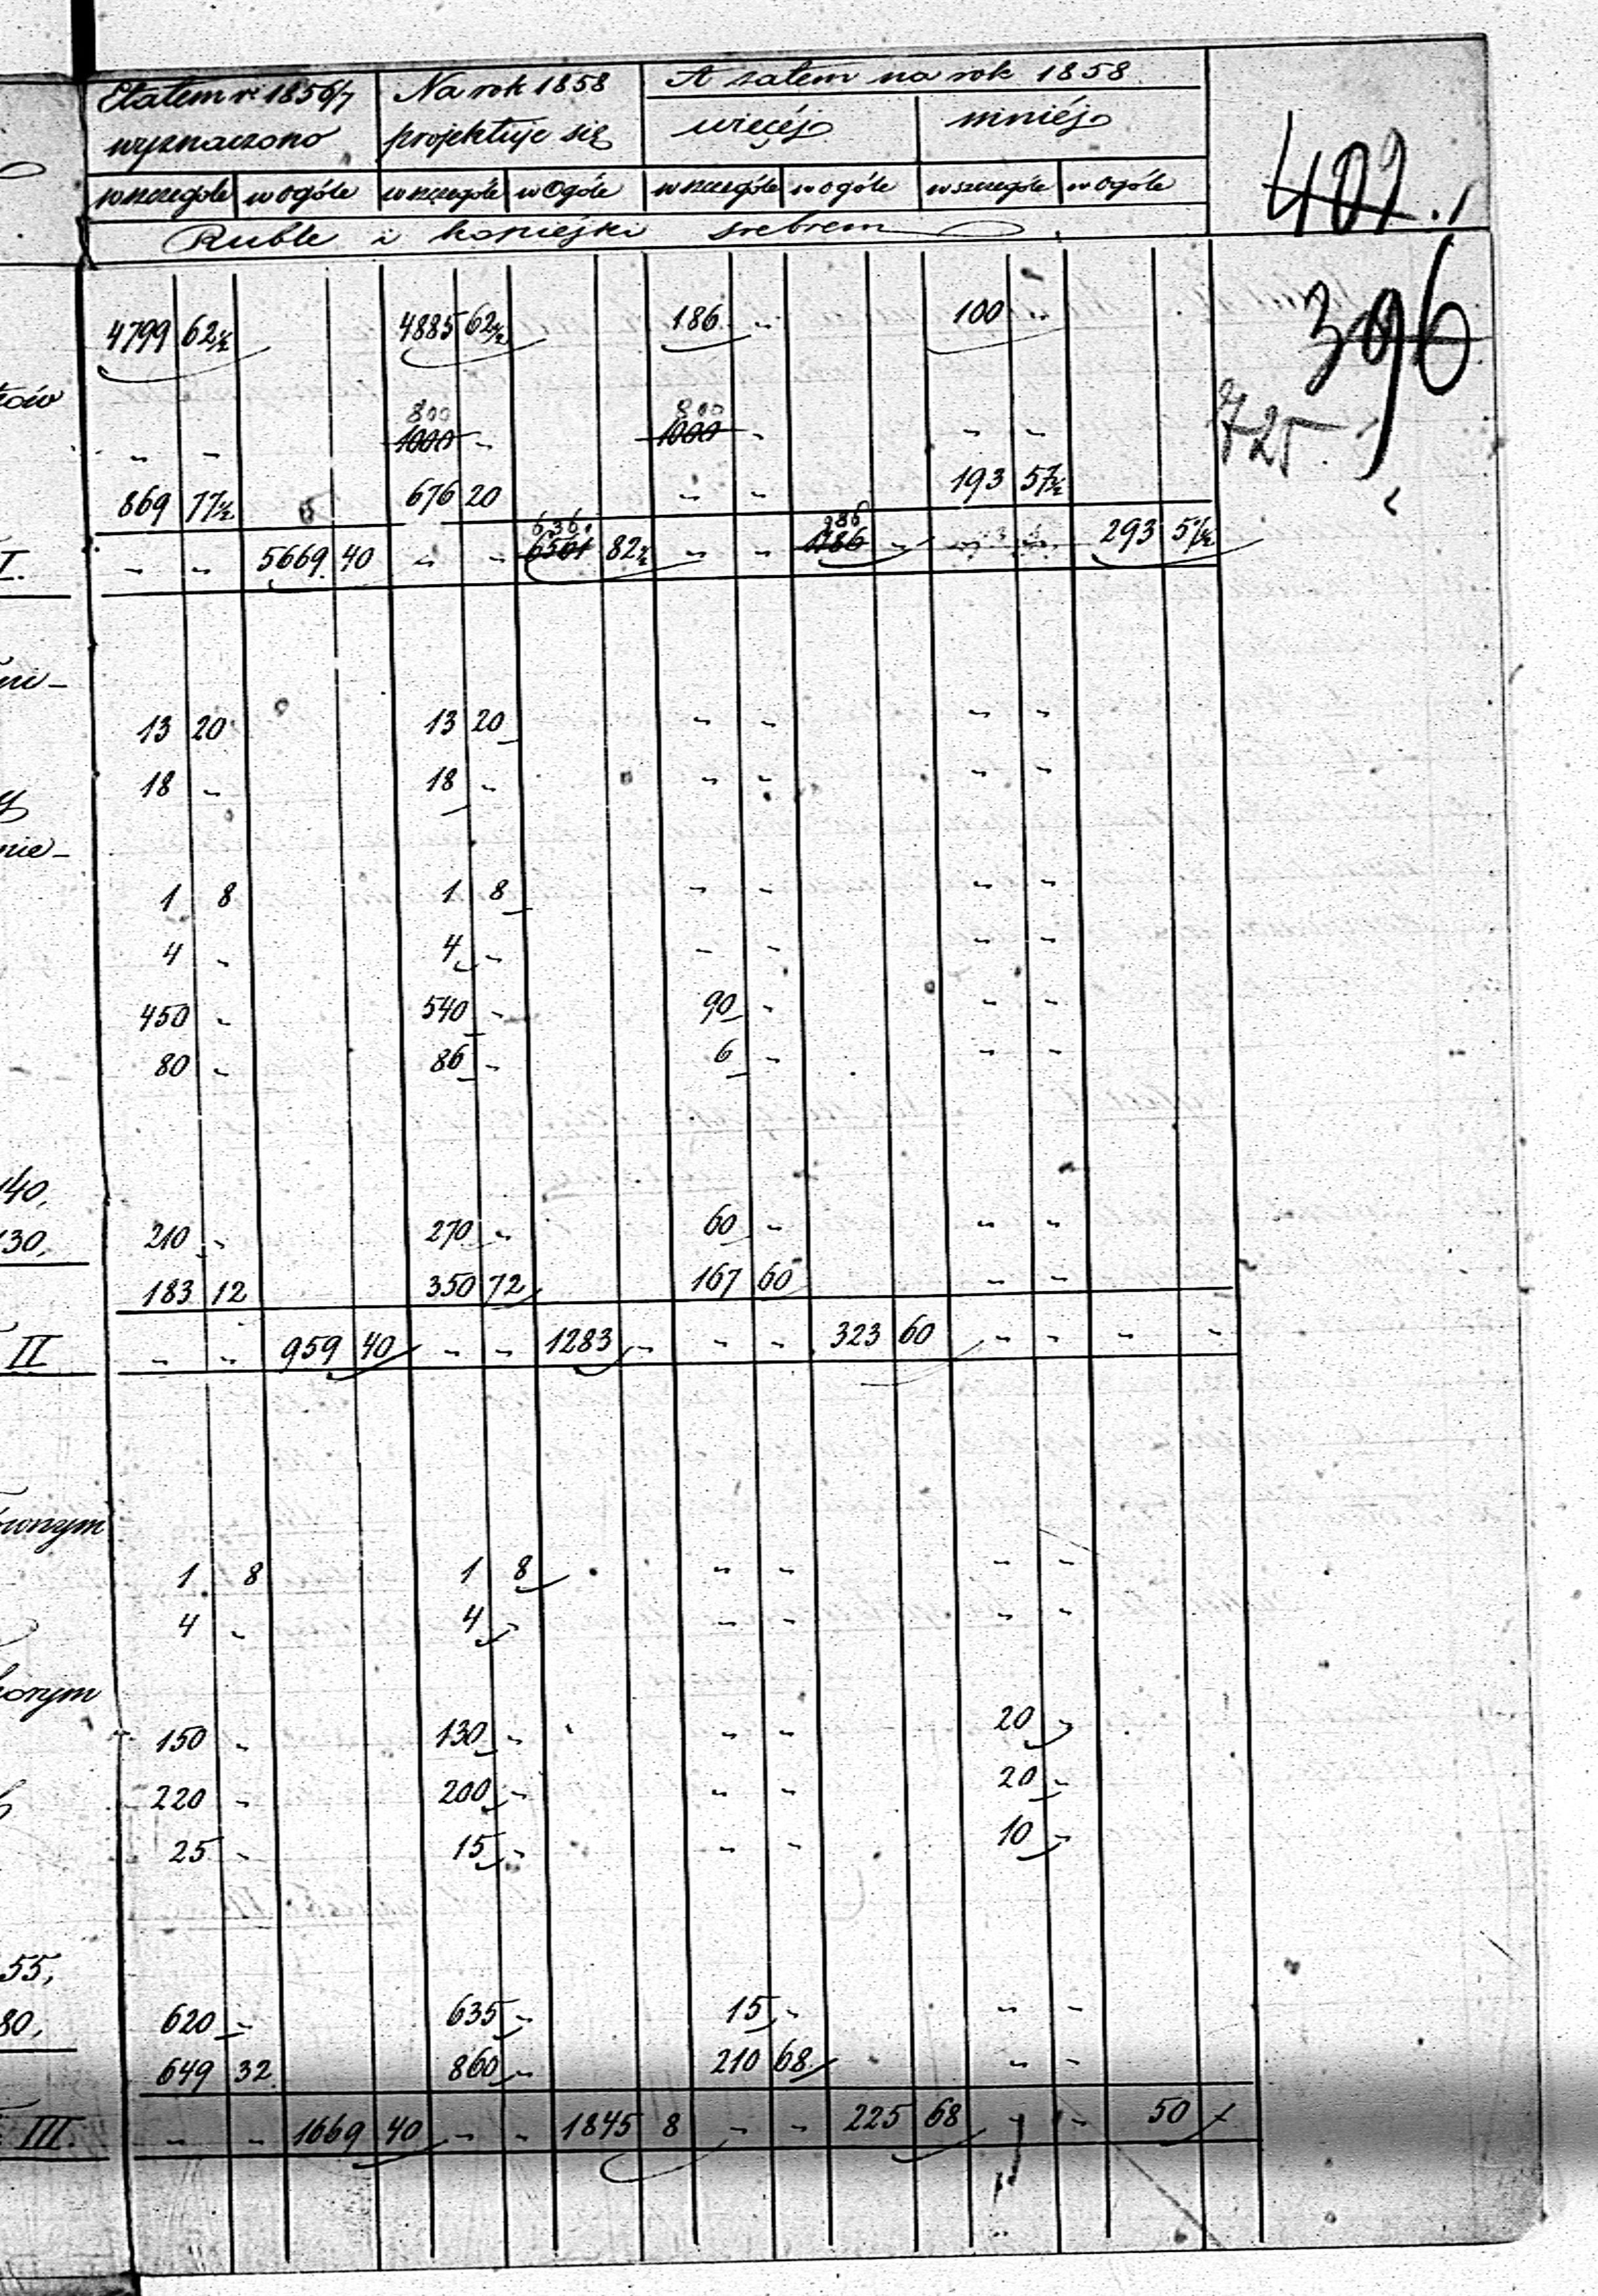 Etatem r: 1856/7 Na rok 1858 A zatem na rok 1858
wyznaczono projektuje się więcéj mniéj
w szczególe w ogóle w szczególe w Ogóle w szczególe w ogóle w szczególe w Ogóle
Ruble i kopiejki srebrem
407
396
725
4799 62½ 4885 62½ 186 " 100 "
800 800
" " 1000 " 1000 " " "
869 77½ 676 20 " " 193 57½
I. " " 5669 40 " " 6561 82½ " " 1186 " 293 57½
986
13 20 13 20 " " " "
18 " 18 " " " " "
1 8 1 8 " " " "
4 " 4 " " " " "
450 " 540 " 90 " " "
80 " 86 " 6 " " "
140,
130, 210 " 270 " 60 " " "
183 12 350 72 167 60 " "
II " " 959 40 " " 1283 " " " 323 60 " " " "
1 8 1 8 " " " "
4 " 4 " " " " "
150 " 130 " " " 20 "
220 " 200 " " " 20 "
25 " 15 " " " 10 "
55,
80, 620 " 635 " 15 " " "
649 32 860 " 210 68 " "
III. " " 1669 40 " " 1845 8 " " 225 68 " " 50 "